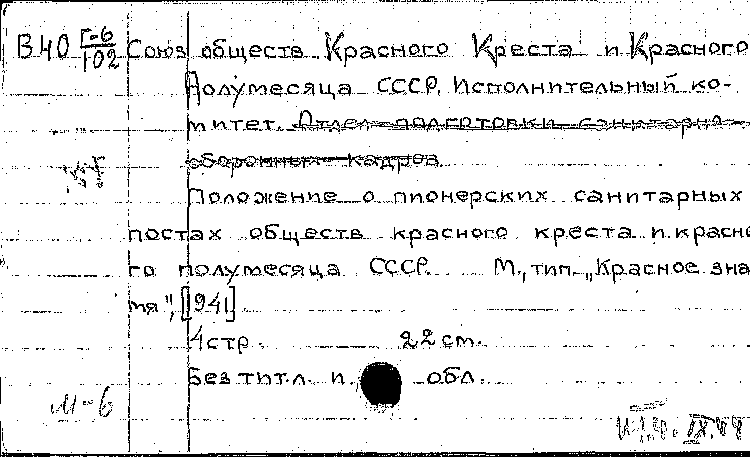 В40 Г-6/102 Союз обществ Красного Креста и Красного
Полумесяца СССР. Исполнительный ко-
митет. Отдел подготовки санитарно-
оборонных кадров
Положение о пионерских санитарных
постах обществ красного креста и красно-
го полумесяца СССР. М., тип. "Красное зна-
мя", [1941]
4 стр. 22 см.
Без тит. л. и обл.
М-6
IX.44